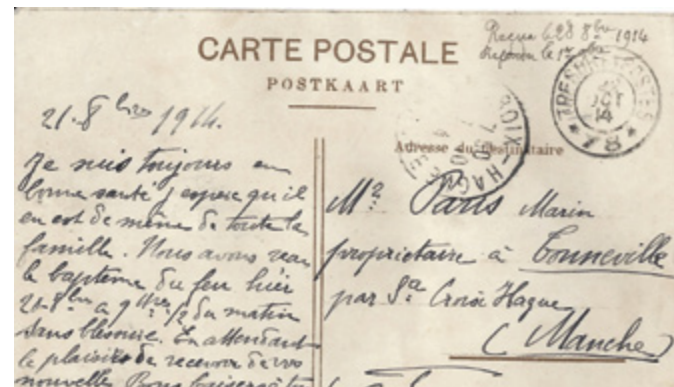 Reçue le 28 8bre 1914
Répondu le 1er 9bre
CARTE POSTALE
POSTKAART
TRESOR ET POSTES
OCT
14
* 78 *
CROIX-HAGUE
Adresse du Destinataire
21-8bre 1914.
Je suis toujours en
bonne santé j espere qu'il
en est de même de toute la
famille. Nous avons reçu
le bapteme du feu hier
20-8bre a 9 hres 1/2 du matin
sans blessure. En attendant
le plaisir de recevoir de vos
nouvelles Bons baisers à
Mr Paris Marin
propriétaire à Tonneville
par Ste Croix Hague
(Manche)